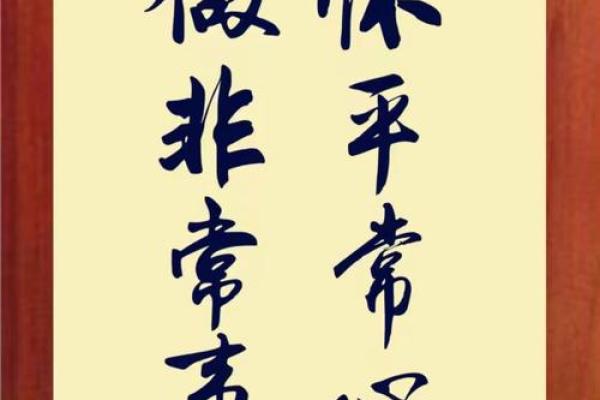 怀平常心
做非常事